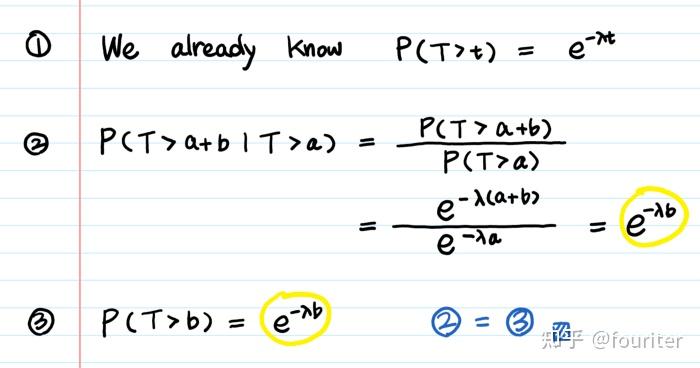 ① We already know P(T>t) = e^{-λt}
② P(T>a+b | T>a) = P(T>a+b) / P(T>a)
= e^{-λ(a+b)} / e^{-λa} = e^{-λb}
③ P(T>b) = e^{-λb} ② = ③
知乎 @fouriter